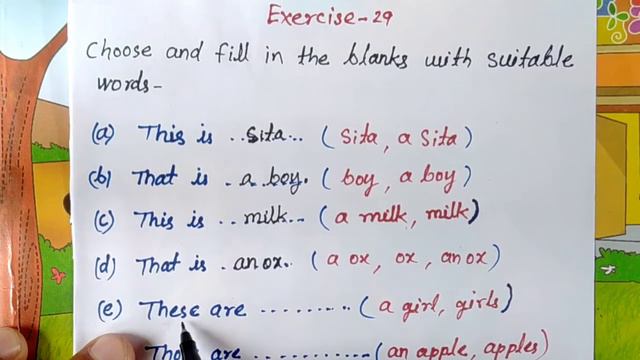 Exercise-29
Choose and fill in the blanks with suitable
words-
(a) This is ..Sita... (Sita, a Sita)
(b) That is . a boy. (boy, a boy)
(c) This is ..milk... (a milk, milk)
(d) That is . an ox.. (a ox, ox, an ox)
(e) These are .......... (a girl, girls)
are ........... (an apple, apples)